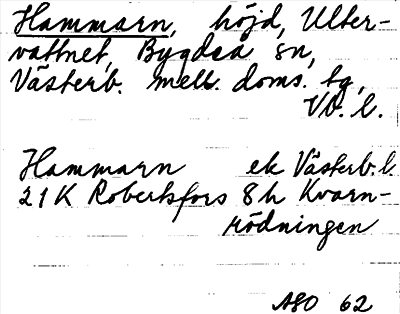 Hammarn, höjd, Ulter-
vattnet, Bygdeå sn,
Västerb. mell. doms. tg,
Vb. l.
Hammarn ek Västerb. l.
21K Robertsfors 8h Kvarn-
rödningen
ASO 62